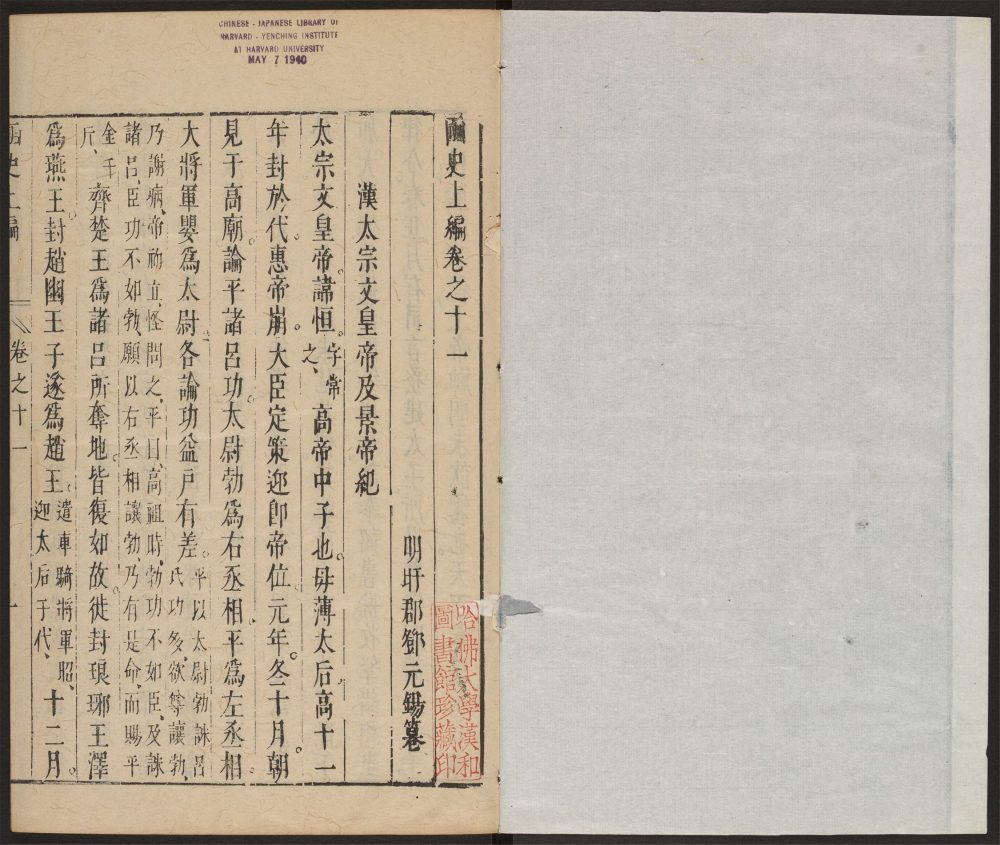 CHINESE - JAPANESE LIBRARY OF
HARVARD - YENCHING INSTITUTE
AT HARVARD UNIVERSITY
MAY 7 1940
函史上編卷之十一
明盱郡鄧元錫纂
哈佛大學漢和
圖書館珍藏印
漢太宗文皇帝及景帝紀
太宗文皇帝諱恒字常之高帝中子也母薄太后高十一
年封於代惠帝崩大臣定策迎卽帝位元年冬十月朝
見于高廟論平諸呂功太尉勃爲右丞相平爲左丞相
大將軍嬰爲太尉各論功益戶有差平以太尉勃誅呂
氏功多欲尊讓勃
乃謝病帝初立怪問之平曰高祖時勃功不如臣及誅
諸呂臣功不如勃願以右丞相讓勃乃有是命而賜平
金千
斤齊楚王爲諸呂所奪地皆復如故徙封琅琊王澤
爲燕王封趙幽王子遂爲趙王遣車騎將軍昭
迎太后于代十二月
函史上編
卷之十一
一